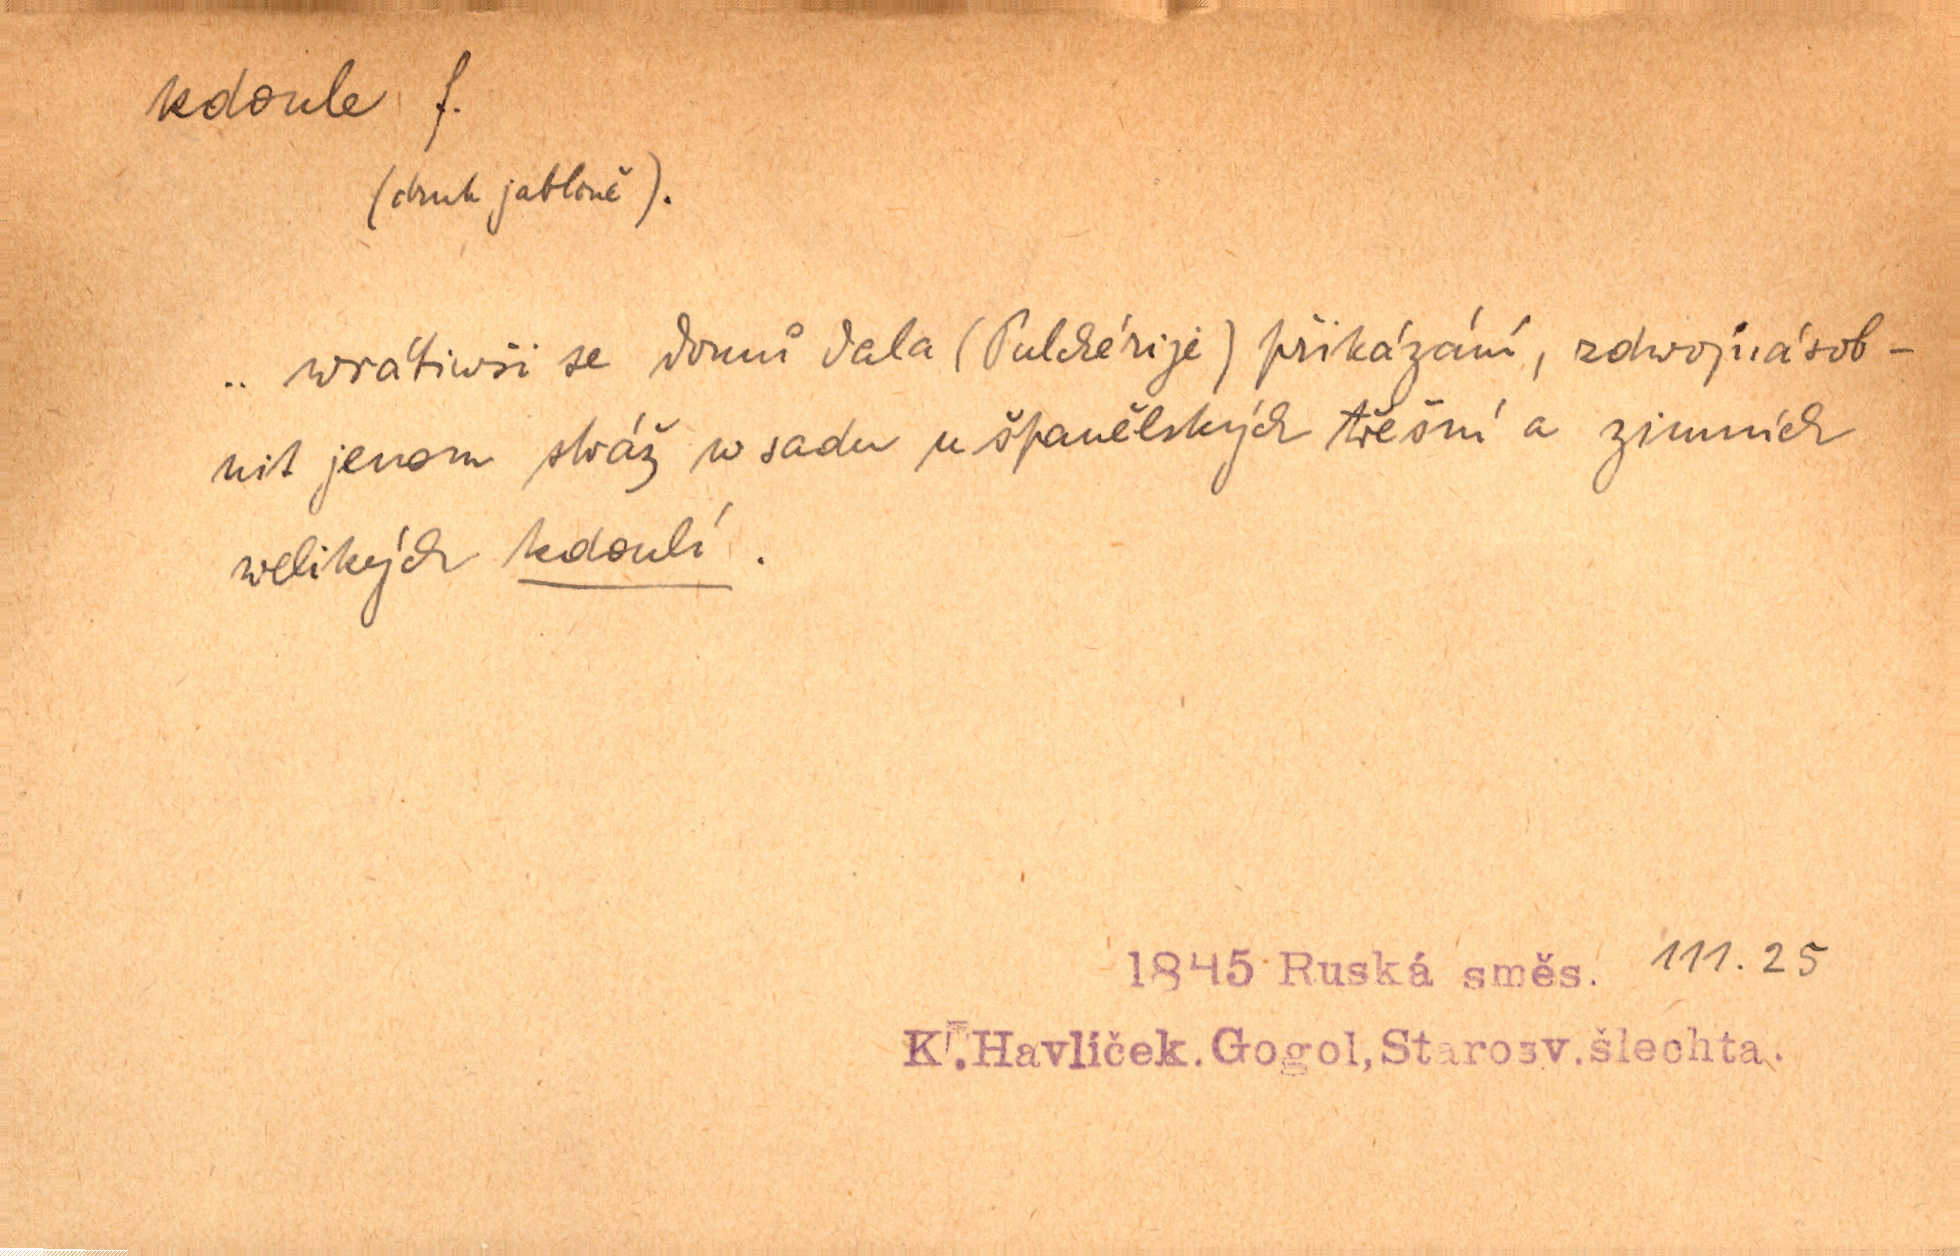 kdoule f.
(druh jabloně).
.. wrátiwši se domů dala (Pulchérije) přikázání, zdwojnásob-
nit jenom stráž w sadu u španělských třešní a zimních
welikých kdoulí.
1845 Ruská směs. 111.25
K. Havlíček. Gogol, Starosv. šlechta.